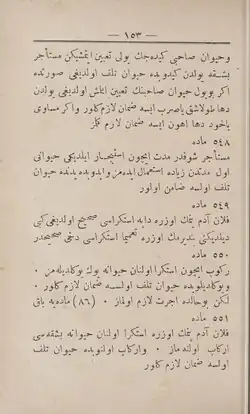 — ١٥٣ —
وحيوان صاحبى كيده‌جك يولى تعيين ايتمشيكن مستأجر
بشقه يولدن كيدوبده حيوان تلف اولديغى صورتده
اكر بو يول حيوان صاحبنك تعيين ايتمش اولديغى يولدن
دها طولاشق ياصرب ايسه ضمان لازم كلور واكر مساوى
ياخود دها اهون ايسه ضمان لازم كلمز
٥٤٨ ماده
مستأجر شوقدر مدت ايچون استيجار ايلديكى حيوانى
اول مدتدن زياده استعمال ايده‌مز وايدوبده يدنده حيوان
تلف اولسه ضامن اولور
٥٤٩ ماده
فلان آدم بنمك اوزره دابه استكراسى صحيح اولديغى كبى
ديلديكنى بنديرمك اوزره تعميماً استكراسى دخى صحيحدر
٥٥٠ ماده
ركوب ايچون استكرا اولنان حيوانه يوك يوكلديله‌مز .
ويوكلديلوبده حيوان تلف اولسه ضمان لازم كلور .
لكن بو حالده اجرت لازم اولماز . (٨٦) ماده‌يه باق
٥٥١ ماده
فلان آدم بنمك اوزره استكرا اولنان حيوانه بشقه‌سى
اركاب اولنه‌ماز . واركاب اولنوبده حيوان تلف
اولسه ضمان لازم كلور